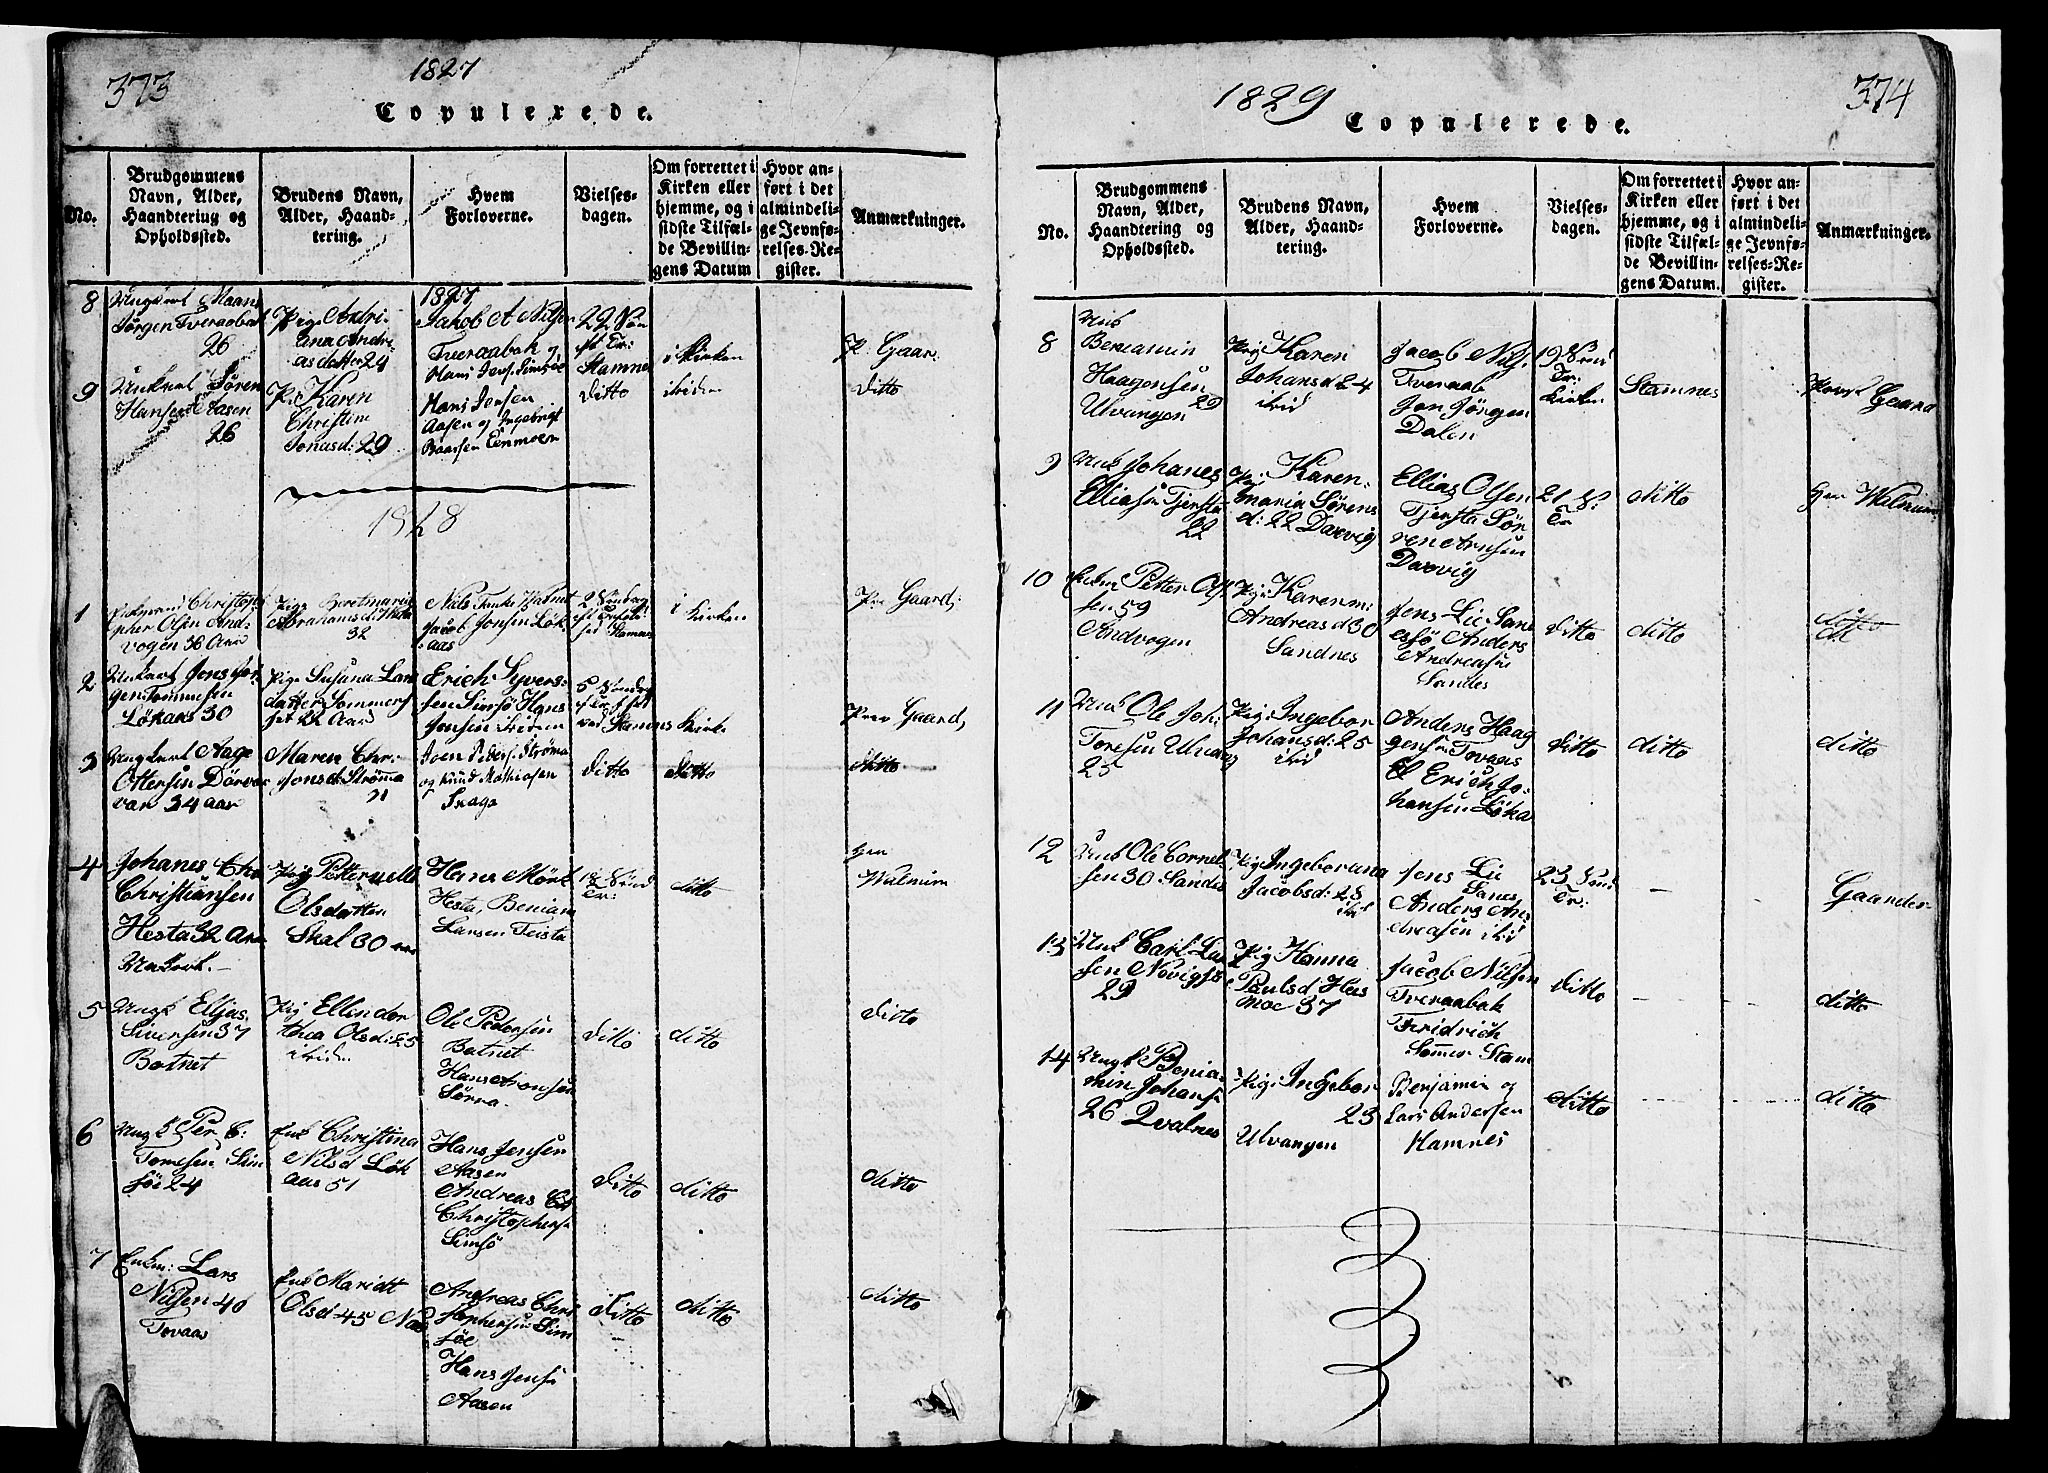 373
1827
Copulerede.
No.
Brudgommens
Navn, Alder,
Haandtering og
Opholdssted.
Brudens Navn,
Alder, Haand-
tering.
Hvem
Forloverne.
Vielses-
dagen.
Om forrettet i
Kirken eller
hjemme, og i
sidste Tilfæl-
de Bevillin-
gens Datum
Hvor an-
ført i det
almindeli-
ge Jevnfø-
relses-Re-
gister.
Anmærkninger.
8
Ungkarl Maans
Jørgen Tveraabak
26
Pige Andri-
ana Andri
asdatter 24
1827
Jacob A Nilsen
Tveraabak og
Hans Jens. Simsøe
22 Søn
ef Tr:
Stamnes
i Kirken
P. Gaar:
9
Unkarl Søren
Hansen Aasen
26
P. Karen
Christine
Jonasd: 29
Hans Jensen
Aasen og Ingebrigt
Baarsen Enmoen
ditto
ibiden
ditto
1828
1
Enkmand Christof
pher Olsen And-
vogen 36 Aar
Pige Beretmaria
Abrahamsd:
32
Nils
Jacob Jonsen Løk-
aas
2 Søndag
i Kirken
Pr Gaard:
2
Unkarl Jens Jør-
gen Tommesen
Løkaas 30
Pige Susana Lars
datter Sommers
set 22 Aar
Erich Syvers-
sen Simsø Hans
Jensen ibiden
5 Søndag
ved Stamnes
Kirke
Prov Gaard,
3
Ungkarl Aage
Ottersen Dørvæ
var 34 aar
Maren Chr.
Jonsd: Strøma
21
Joen Peders. Strøma
og Knud Mathiasen
Skage
ditto
ditto
ditto
4
Johanes Chr
Christiansen
Hesta 32 Aar
Unkarl.
Pig Petternelle
Olsdatter
Skal 30 aar
Hans Mørk
Hesta, Beniam
Larsen Teista
18 Sønd
Tr:
ditto
Her
Walnum
5
Ungk Elljas
Siversen 37
Botnet
Pig Ellen dor
thea Olsd: 25
ibid.
Ole Pedersen
Botnet
Hans Aronsen
Sørra.
ditto
ditto
ditto
6
Ungk Per C:
Tomesen Sim
søe 24
Enk Christina
Nilsd Løk
aas 51
Hans Jensen
Aasen
Andreas
Christophers
Simsø
ditto
ditto
ditto
7
Enkm: Lars
Nilsen 40
Tovaas
Enk Maridt
Olsd 45
Andreas Chri
stophersen Sim
søe
Hans Jens
Aasen
ditto
ditto
ditto
1829
374
Copulerede.
No.
Brudgommens
Navn, Alder,
Haandtering og
Opholdssted.
Brudens Navn,
Alder, Haand-
tering.
Hvem
Forloverne.
Vielses-
dagen.
Om forrettet i
Kirken eller
hjemme, og i
sidste Tilfæl-
de Bevillin-
gens Datum.
Hvor an-
ført i det
almindeli-
ge Jevnfø-
relses-Re-
gister.
Anmærkninger.
8
Unk
Beniamin
Haagensen
Ulvangen 29
Pig Karen
Johansd 24
ibid
Jacob Nils.
Tveraab
Jon Jørgen
Dalen
19 Sønd
Tr:
Kirken
Stamnes
Provst Gaard
9
Unk Johanes
Elliasen Tjersta
22
Pig Karen
maria Sørens
d: 22 Darvig
Ellias Olsen
Tjersta Sør
ren Arnsen
Darvig
21 S:
Tr
ditto
Her Walnum:
10
Enkm Petter Ol
sen 59
Andvogen
Pig: Karen m:
Andreasd 30
Sandnes
Jens Lie Sand
Anders
Andreasen
Sandes
ditto
ditto
ditto
11
Unk Ole Joh:
Toresen Ulvang
25
Pig: Ingebor
Johansd: 25
ibid
Anders Haag
gensen Tovaas
Erich Jo-
hansen Løka
ditto
ditto
ditto
12
Unk Ole Cornel-
sen 30 Sandes
Pig Ingeborana
Jacobsd: 28
ibid
Jens Lie
Sanes
Anders An
dreasen ibid
23 Sønd
Tr:
Gaarder
13
Unk Carl Lar
sen
29
Pig Hanna
Paulsd Hus
moe 37
Jacob Nilsen
Tveraabak
Fridrich
Sommer Stam
ditto
ditto
14
Ungk Benia-
min Johans
26 Qvalnes
Pig: Ingebor
23
Ulvangen
Benjamin og
Lars Andersen
Hamnes
ditto
ditto